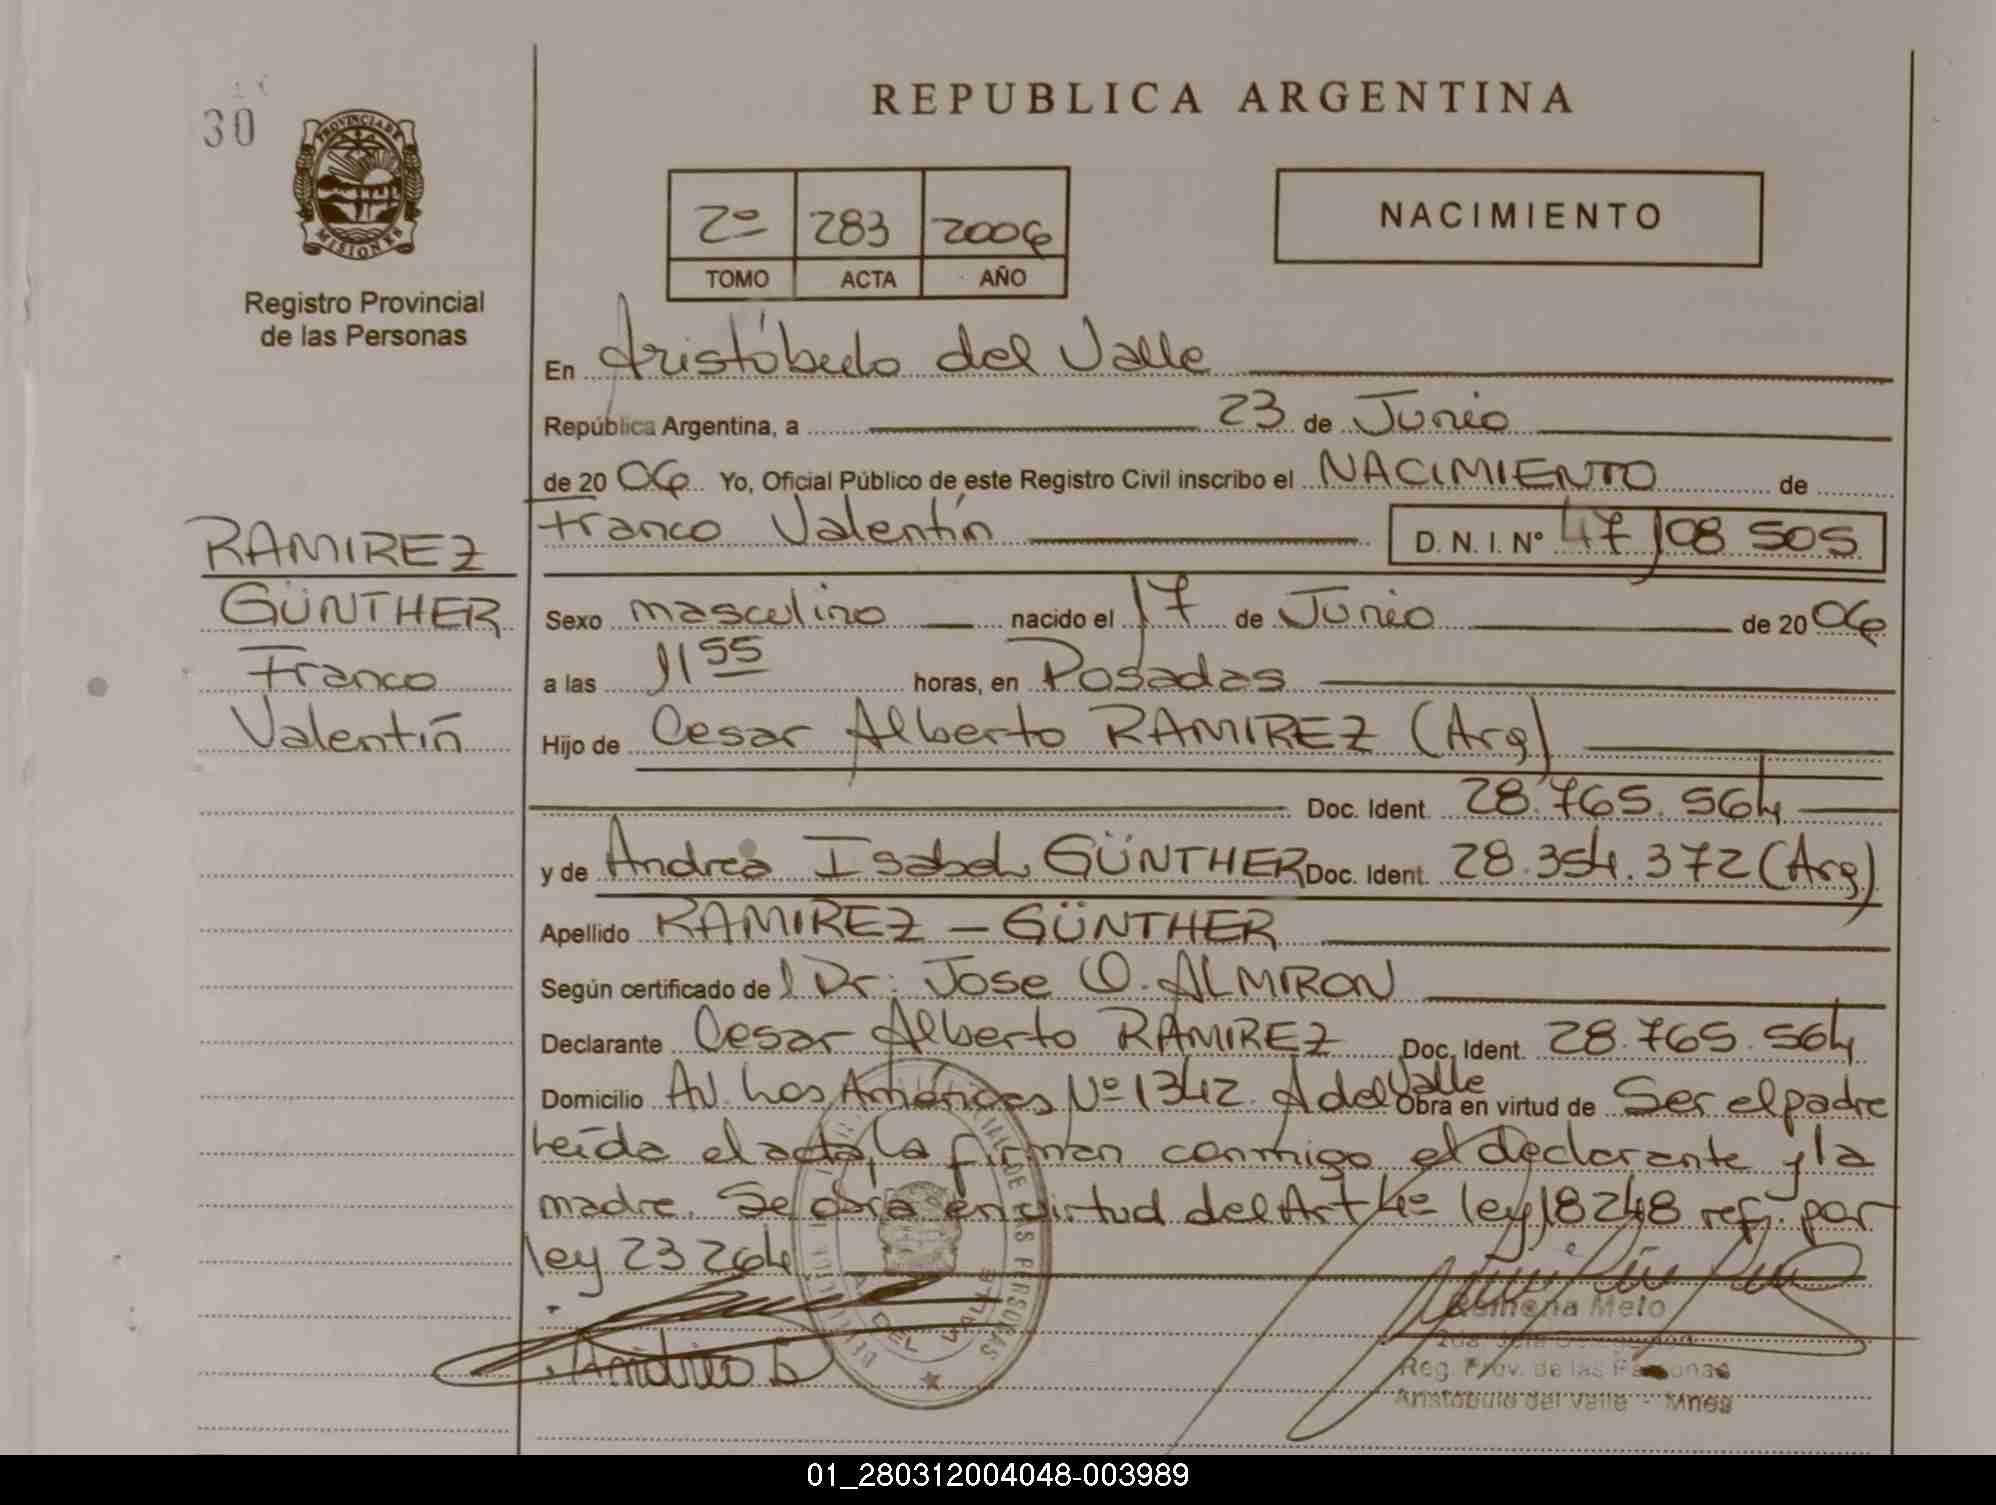 30
PROVINCIA DE
MISIONES
Registro Provincial
de las Personas
REPUBLICA ARGENTINA
2º 283 2006
TOMO ACTA AÑO
NACIMIENTO
En Aristóbulo del Valle
República Argentina, a 23 de Junio
de 20 06 Yo, Oficial Público de este Registro Civil inscribo el NACIMIENTO de
Franco Valentín D. N. I. Nº 47 108 505
RAMIREZ
GÜNTHER
Franco
Valentín
Sexo masculino nacido el 17 de Junio de 20 06
a las 11 55 horas, en Posadas
Hijo de Cesar Alberto RAMIREZ (Arg)
Doc. Ident. 28.765.564
y de Andrea Isabel GÜNTHER Doc. Ident. 28.354.372 (Arg)
Apellido RAMIREZ - GÜNTHER
Según certificado de l Dr: Jose O. ALMIRON
Declarante Cesar Alberto RAMIREZ Doc. Ident. 28.765.564
Domicilio AV. Las Américas Nº 1342. A del Valle Obra en virtud de Ser el padre
Leída el acta, la firman conmigo el declarante y la
madre. Se obra en virtud del Art 4º ley 18248 ref. por
ley 23264
DE LAS PERSONAS
A. DEL VALLE
Melo
Reg. Prov. de las Personas
Aristóbulo del Valle - Mnes
01_280312004048-003989